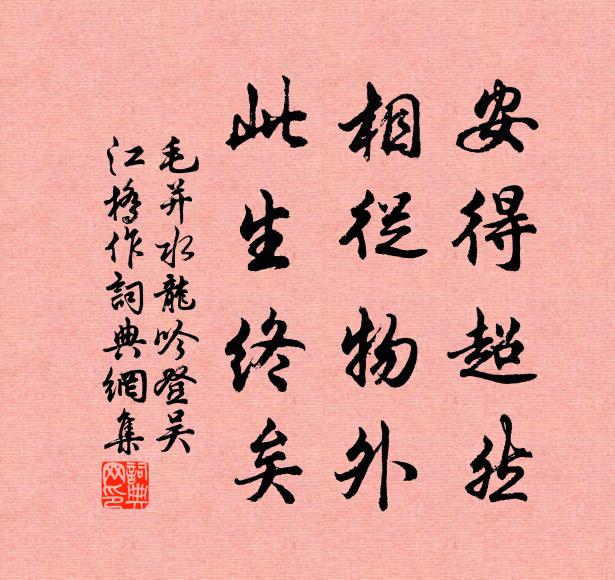 安得超然
相從物外
此生終矣
毛并水龍吟登吳
江橋作詞典網集
詞典
网印